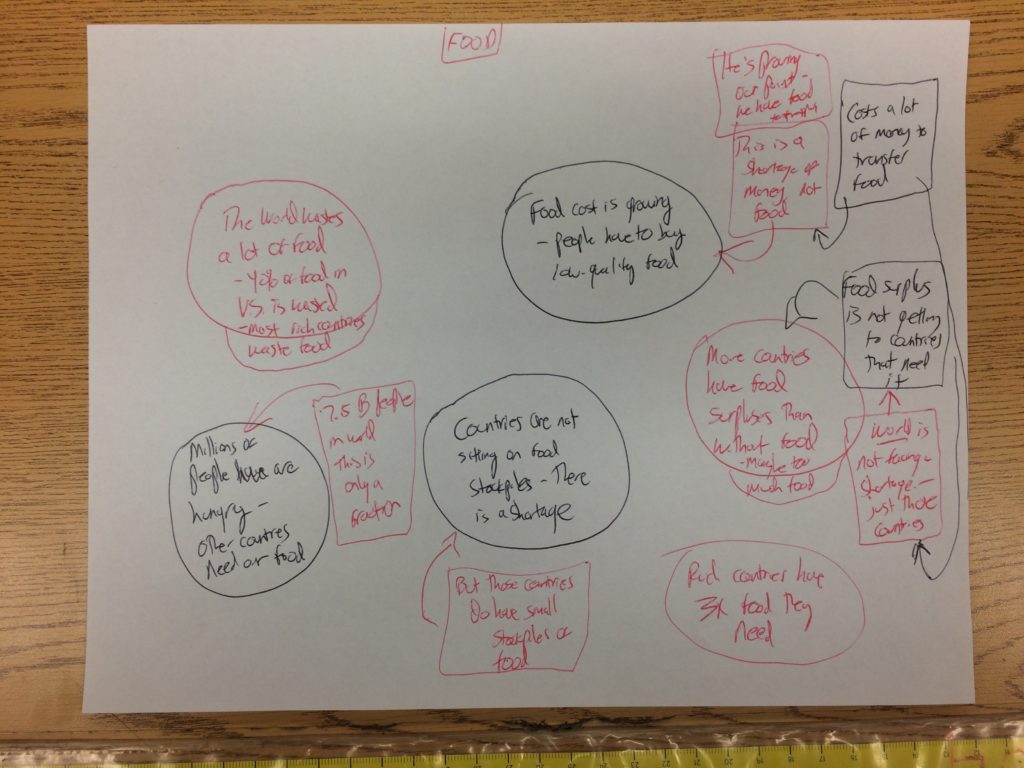 FOOD
He's proving
our point –
we have food
Costs a lot
of money to
transfer
food
This is a
shortage of
money not
food
The world wastes
a lot of food
- 40% of food in
U.S. is wasted
- most rich countries
waste food
Food cost is growing
- people have to buy
low-quality food
Food surplus
is not getting
to countries
that need
it
More countries
have food
surpluses than
without food
- maybe too
much food
7.5 B people
in world
This is
only a
fraction
Millions of
people have are
hungry –
other countries
need our food
Countries are not
sitting on food
stockpiles – There
is a shortage
world is
not facing a
shortage –
just those
countries
But those countries
do have small
stockpiles of
food
Rich countries have
3x food they
need